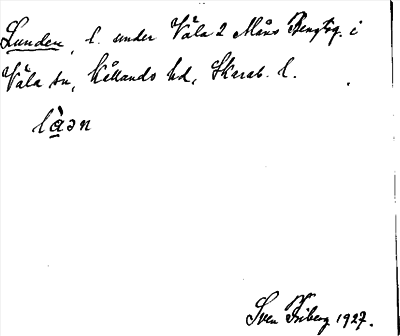 Lunden, l. under Väla 2 Måns Bengtsg. i
Väla sn, Kållands hd, Skarab. l.
lὰən
Sven Friberg 1927.